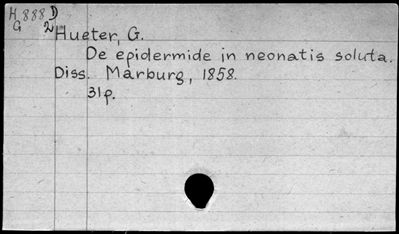 H 888 D
G 2
Hueter, G.
De epidermide in neonatis soluta.
Diss. Marburg, 1858.
31p.